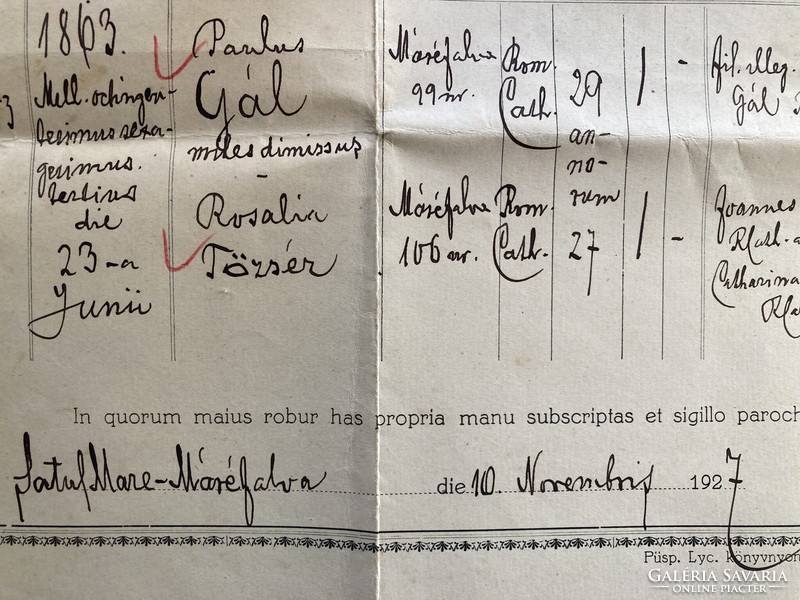 1863.
Mell. octingen-
tesimus sexa-
gesimus.
tertius
die
23-a
Junii
Paulus
Gál
miles dimissus
-
Rosalia
Tőzsér
Máréfalva
99 nr.
Máréfalva
106 nr.
Rom.
Cath.
Rom.
Cath.
29
an-
no-
rum
27
/
/
-
-
fil. illeg.
Gál
Joannes
R. Cath.
Catharina
In quorum maius robur has propria manu subscriptas et sigillo paroch
Satul Mare-Máréfalva die 10. Novembris 1927
Püsp. Lyc. könyvnyom
GALÉRIA SAVARIA
ONLINE PIACTÉR